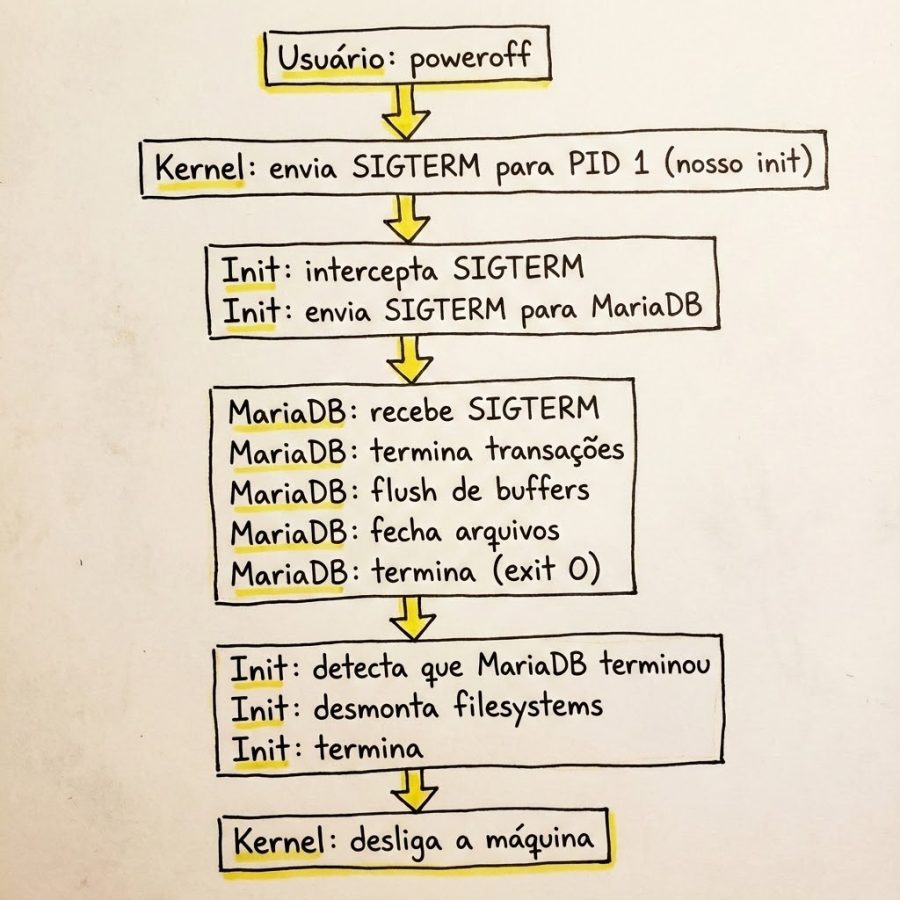 Usuário: poweroff
Kernel: envia SIGTERM para PID 1 (nosso init)
Init: intercepta SIGTERM
Init: envia SIGTERM para MariaDB
MariaDB: recebe SIGTERM
MariaDB: termina transações
MariaDB: flush de buffers
MariaDB: fecha arquivos
MariaDB: termina (exit 0)
Init: detecta que MariaDB terminou
Init: desmonta filesystems
Init: termina
Kernel: desliga a máquina